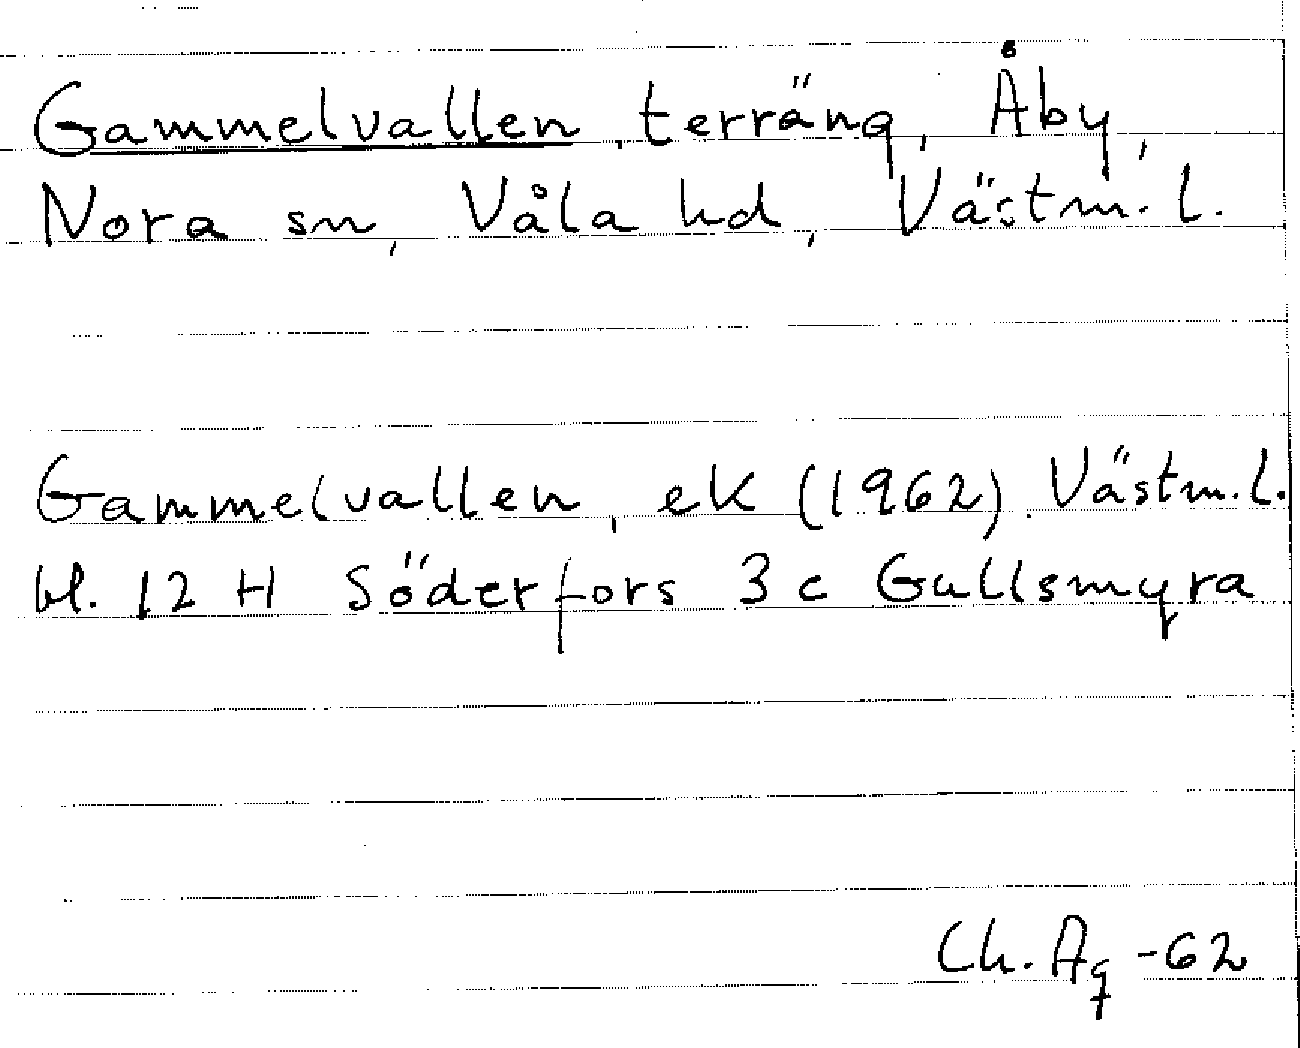 Gammelvallen, terräng, Åby,
Nora sn, Våla hd, Västm. l.
Gammelvallen, ek (1962). Västm. l.
bl. 12 H Söderfors 3 c Gullsmyra
Ch. Ag -62